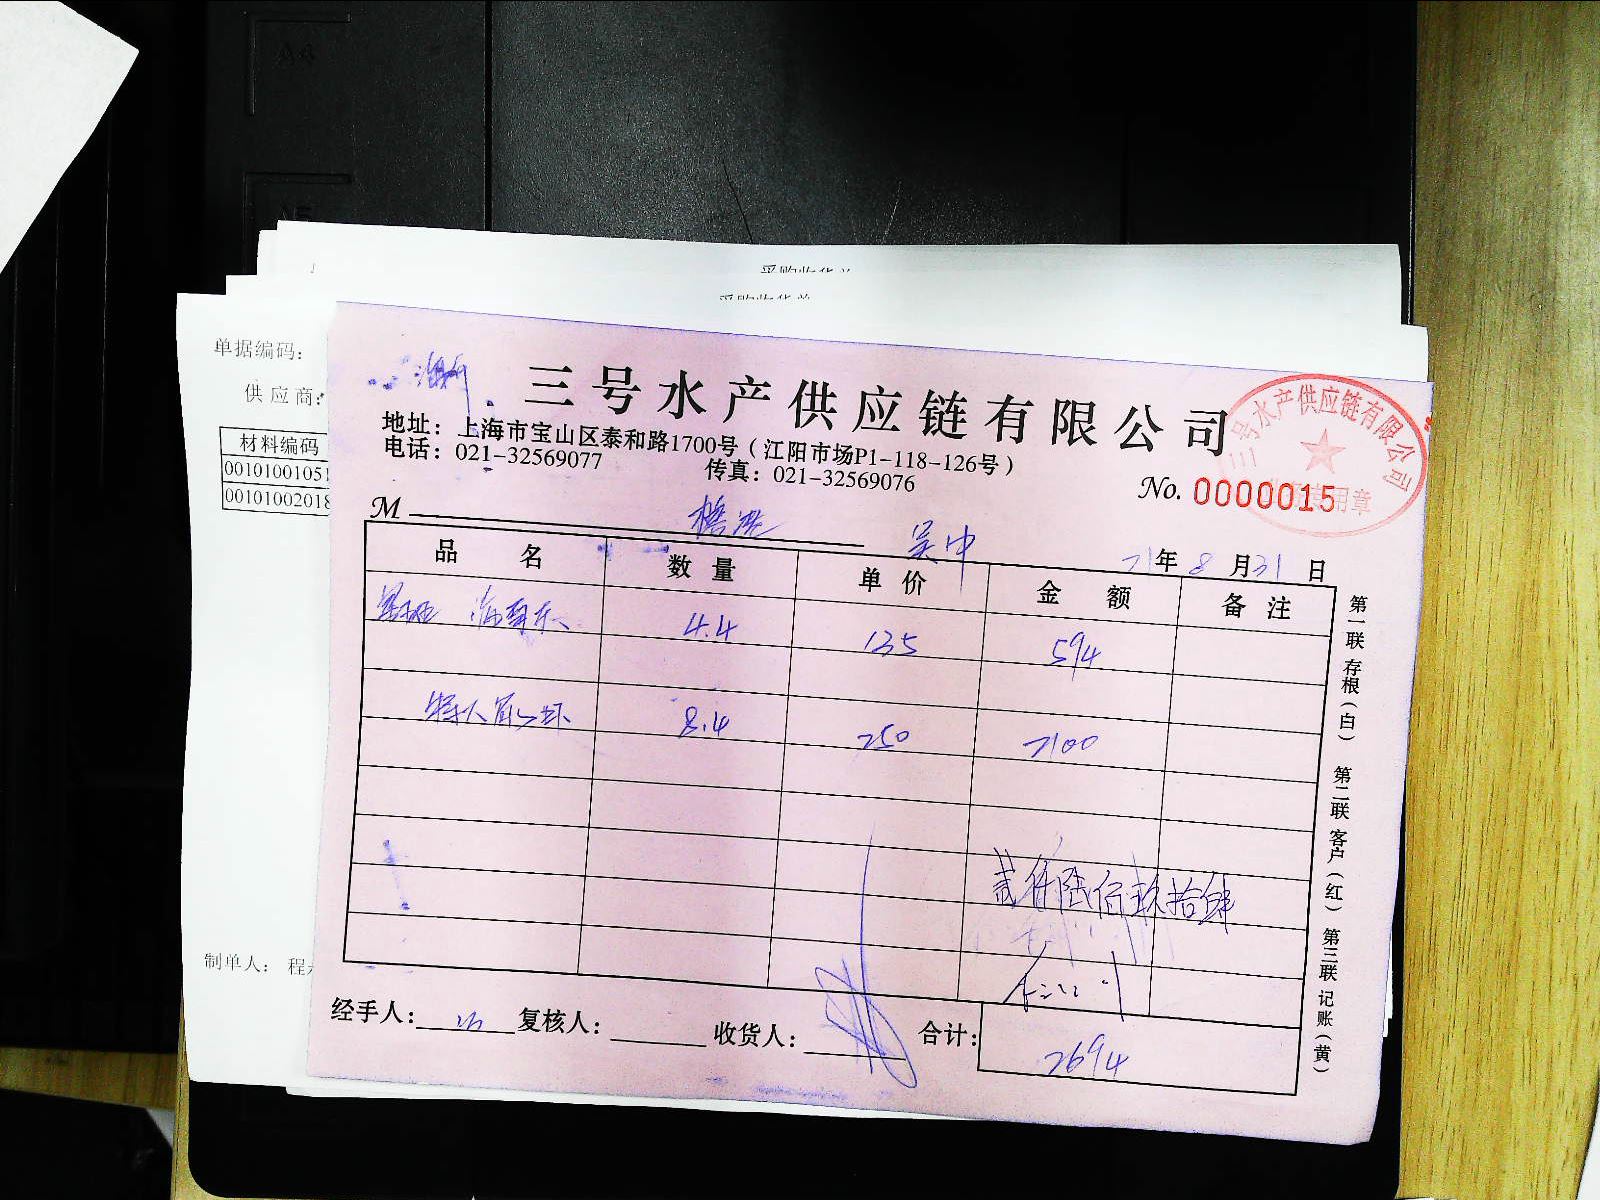 采购收货单
采购收货单
单据编码：
供应商：
材料编码
00101001051
00101002018
制单人： 程
三号水产供应链有限公司
地址：上海市宝山区泰和路1700号（江阳市场P1-118-126号）
电话：021-32569077 传真：021-32569076
No. 0000015
三号水产供应链有限公司
专用章
M
吴中
21年8月31日
品名 数量 单价 金额 备注
4.4 135 594
8.4 250 2100
贰仟陆佰玖拾肆
经手人： 复核人： 收货人： 合计： 2694
第一联 存根（白） 第二联 客户（红） 第三联 记账（黄）